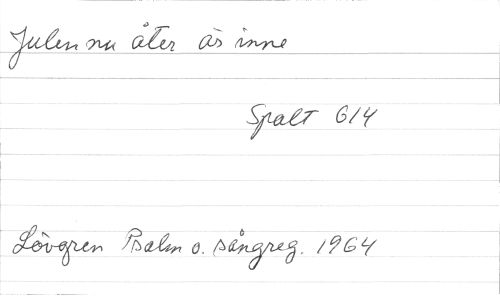 Julen nu åter är inne
Spalt 614
Lövgren Psalm o. sångreg. 1964